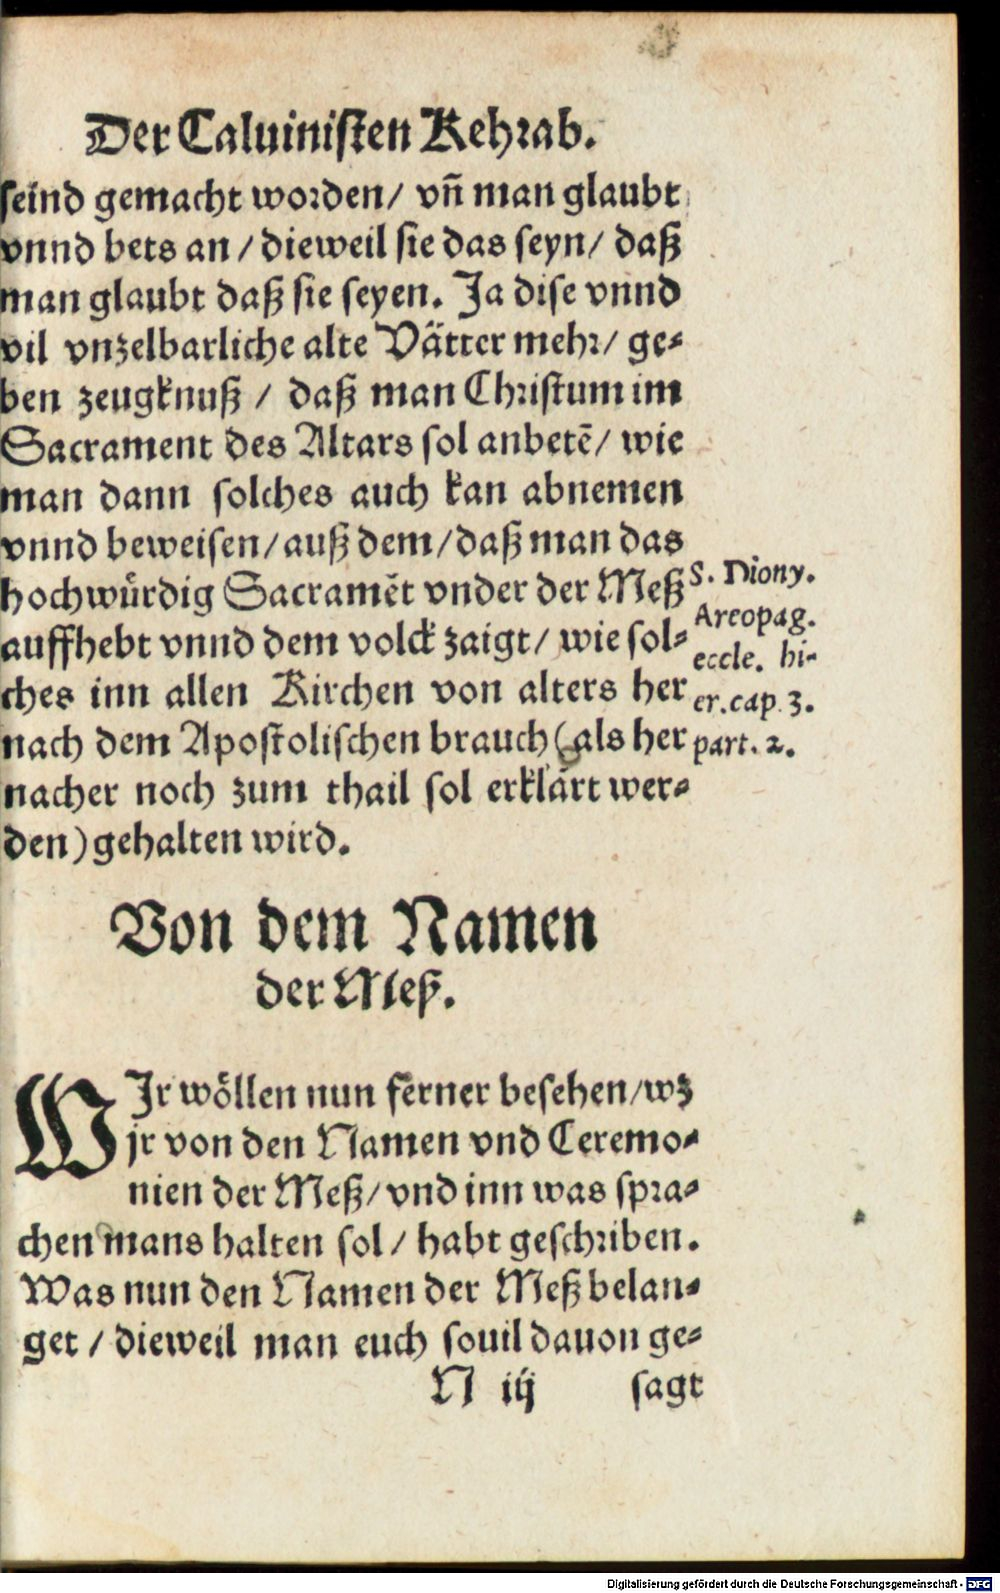 Der Caluinisten Kehrab.
seind gemacht worden/ vn̄ man glaubt
vnnd bets an / dieweil sie das seyn/ daß
man glaubt daß sie seyen. Ja dise vnnd
vil vnzelbarliche alte Vätter mehr/ ge⸗
ben zeugknuß / daß man Christum im
Sacrament des Altars sol anbetē/ wie
man dann solches auch kan abnemen
vnnd beweisen/ auß dem/ daß man das
hochwürdig Sacramēt vnder der Meß
auffhebt vnnd dem volck zaigt/ wie sol⸗
ches inn allen Kirchen von alters her
nach dem Apostolischen brauch (als her
nacher noch zum thail sol erklärt wer⸗
den) gehalten wird.
S. Diony.
Areopag.
eccle. hi-
er. cap. 3.
part. 2.
Von dem Namen
der Meß.
WJr wöllen nun ferner besehen/ wz
jr von den Namen vnd Ceremo⸗
nien der Meß/ vnd inn was spra⸗
chen mans halten sol/ habt geschriben.
Was nun den Namen der Meß belan⸗
get / dieweil man euch souil dauon ge⸗
N iij sagt
Digitalisierung gefördert durch die Deutsche Forschungsgemeinschaft - DFG